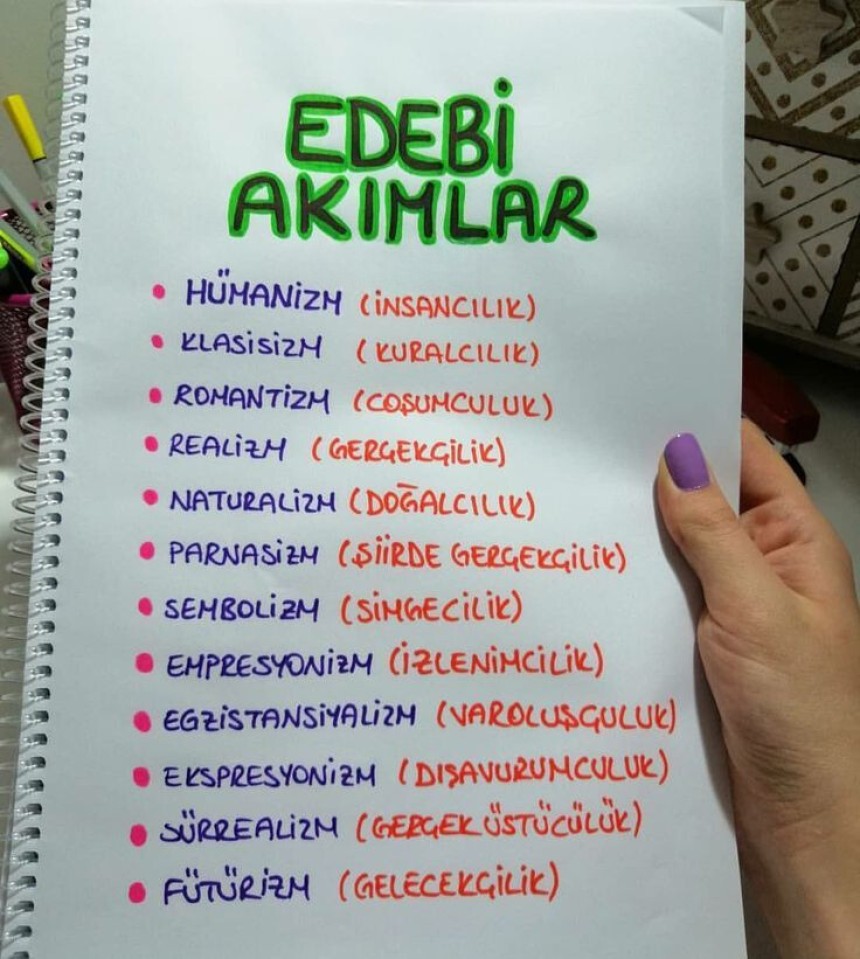 EDEBİ
AKIMLAR
• HÜMANİZM (İNSANCILIK)
• KLASİSİZM (KURALCILIK)
• ROMANTİZM (COŞUMCULUK)
• REALİZM (GERÇEKÇİLİK)
• NATURALİZM (DOĞALCILIK)
• PARNASİZM (ŞİİRDE GERÇEKÇİLİK)
• SEMBOLİZM (SİMGECİLİK)
• EMPRESYONİZM (İZLENİMCİLİK)
• EGZİSTANSİYALİZM (VAROLUŞÇULUK)
• EKSPRESYONİZM (DIŞAVURUMCULUK)
• SÜRREALİZM (GERÇEK ÜSTÜCÜLÜK)
• FÜTÜRİZM (GELECEKÇİLİK)